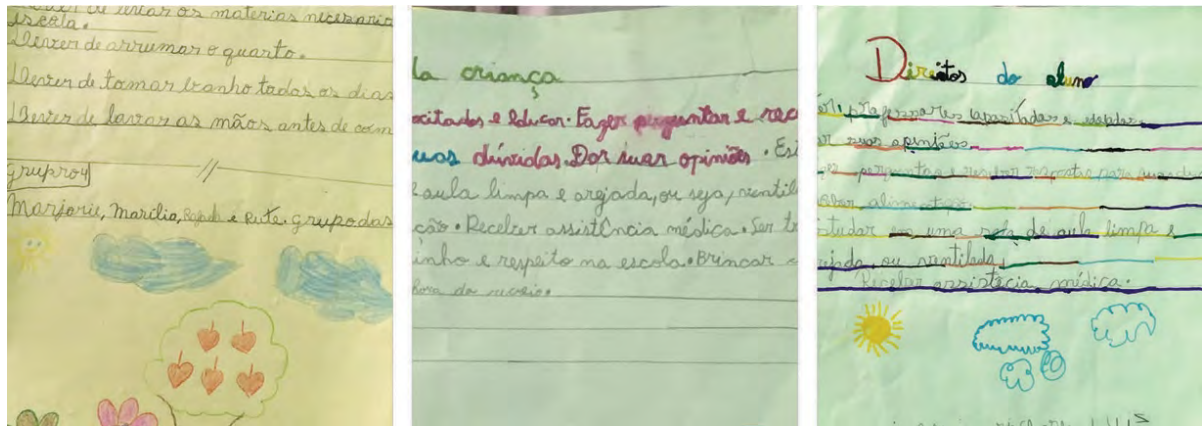 os materias necessario
escola.
Dever de arrumar o quarto.
Dever de tomar banho todas os dias
Dever de lavar as mãos antes de com
grupro4
Marjorie, Marília, e Rute. grupo das
la criança
acitados e Educar. Fazer perguntar e rec
uas dúvidas. Dar suar opiniões. Es
e aula limpa e arejada, ou seja, ventil
ção. Receber assistência médica. Ser t
inho e respeito na escola. Brincar
hora do recreio.
Direitos do aluno
professores capasitados e
ar suas opiniões
perguntas e receber
alimentação
studar em uma de aula limpa e
ejada, ou ventilada,
Receber assistecia médica.